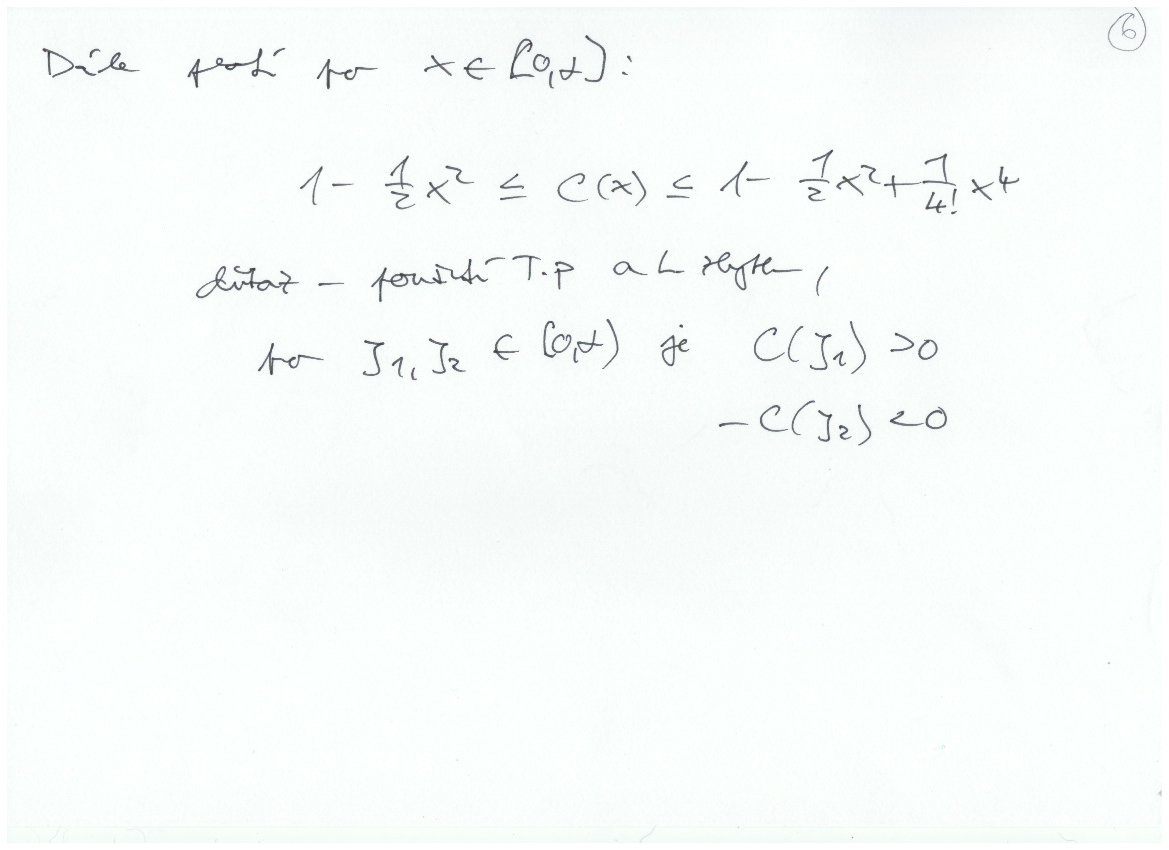 6
Dále platí pro x ∈ [0,α]:
1 - 1/2 x² ≤ C(x) ≤ 1 - 1/2 x² + 1/4! x⁴
důkaz - použití T.p a L zbytku,
pro ξ₁, ξ₂ ∈ [0,α) je C(ξ₁) >0
-C(ξ₂) <0